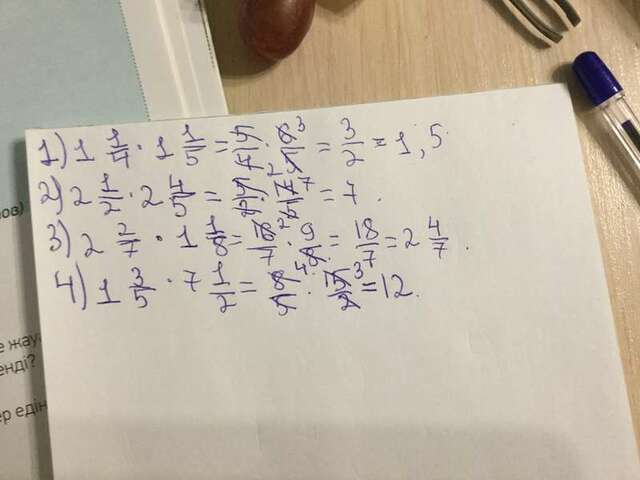 1) 1 1/4 · 1 1/5 = 5/4 · 6/5 = 3/2 = 1,5
2) 2 1/2 · 2 4/5 = 5/2 · 14/5 = 7.
3) 2 2/7 · 1 1/8 = 16/7 · 9/8 = 18/7 = 2 4/7.
4) 1 3/5 · 7 1/2 = 8/5 · 15/2 = 12.
ов)
е жау
енді?
ер едін